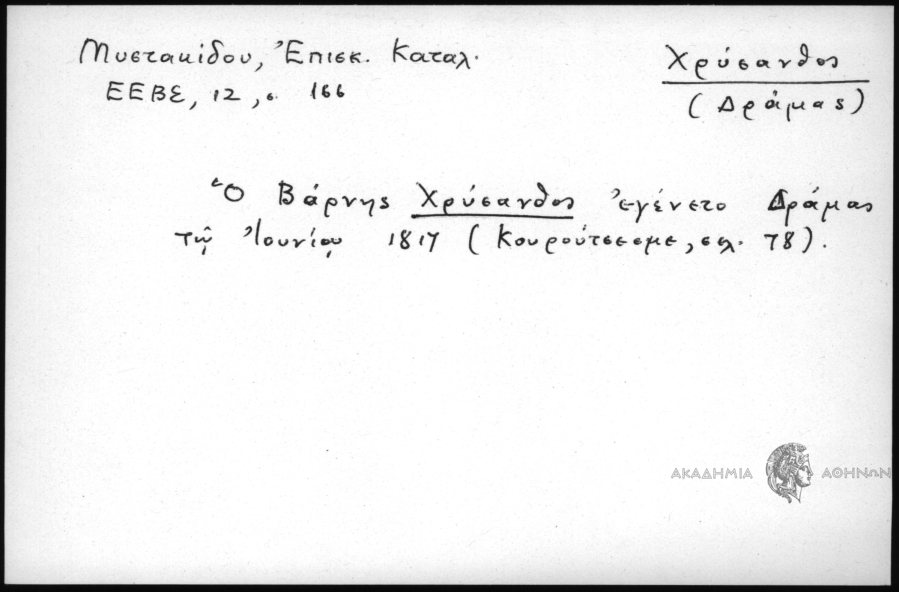 Μυστακίδου, Ἐπισκ. Καταλ.
ΕΕΒΣ, 12, σ. 166
Χρύσανθος
(Δράμας)
Ὁ Βάρνης Χρύσανθος ἐγένετο Δράμας
τῷ Ἰουνίῳ 1817 (Κουρούτσεσμε, σελ. 78).
ΑΚΑΔΗΜΙΑ ΑΘΗΝΩΝ